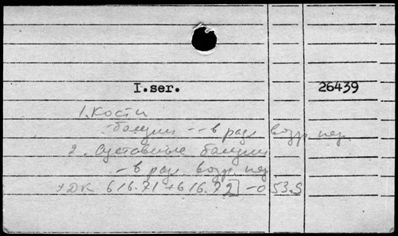 I.ser. 26439
1. Кости
- в разл. возр. пер.
2. Суставные
- в разл. возр. пер.
УДК 616.71+616.72]-053.5